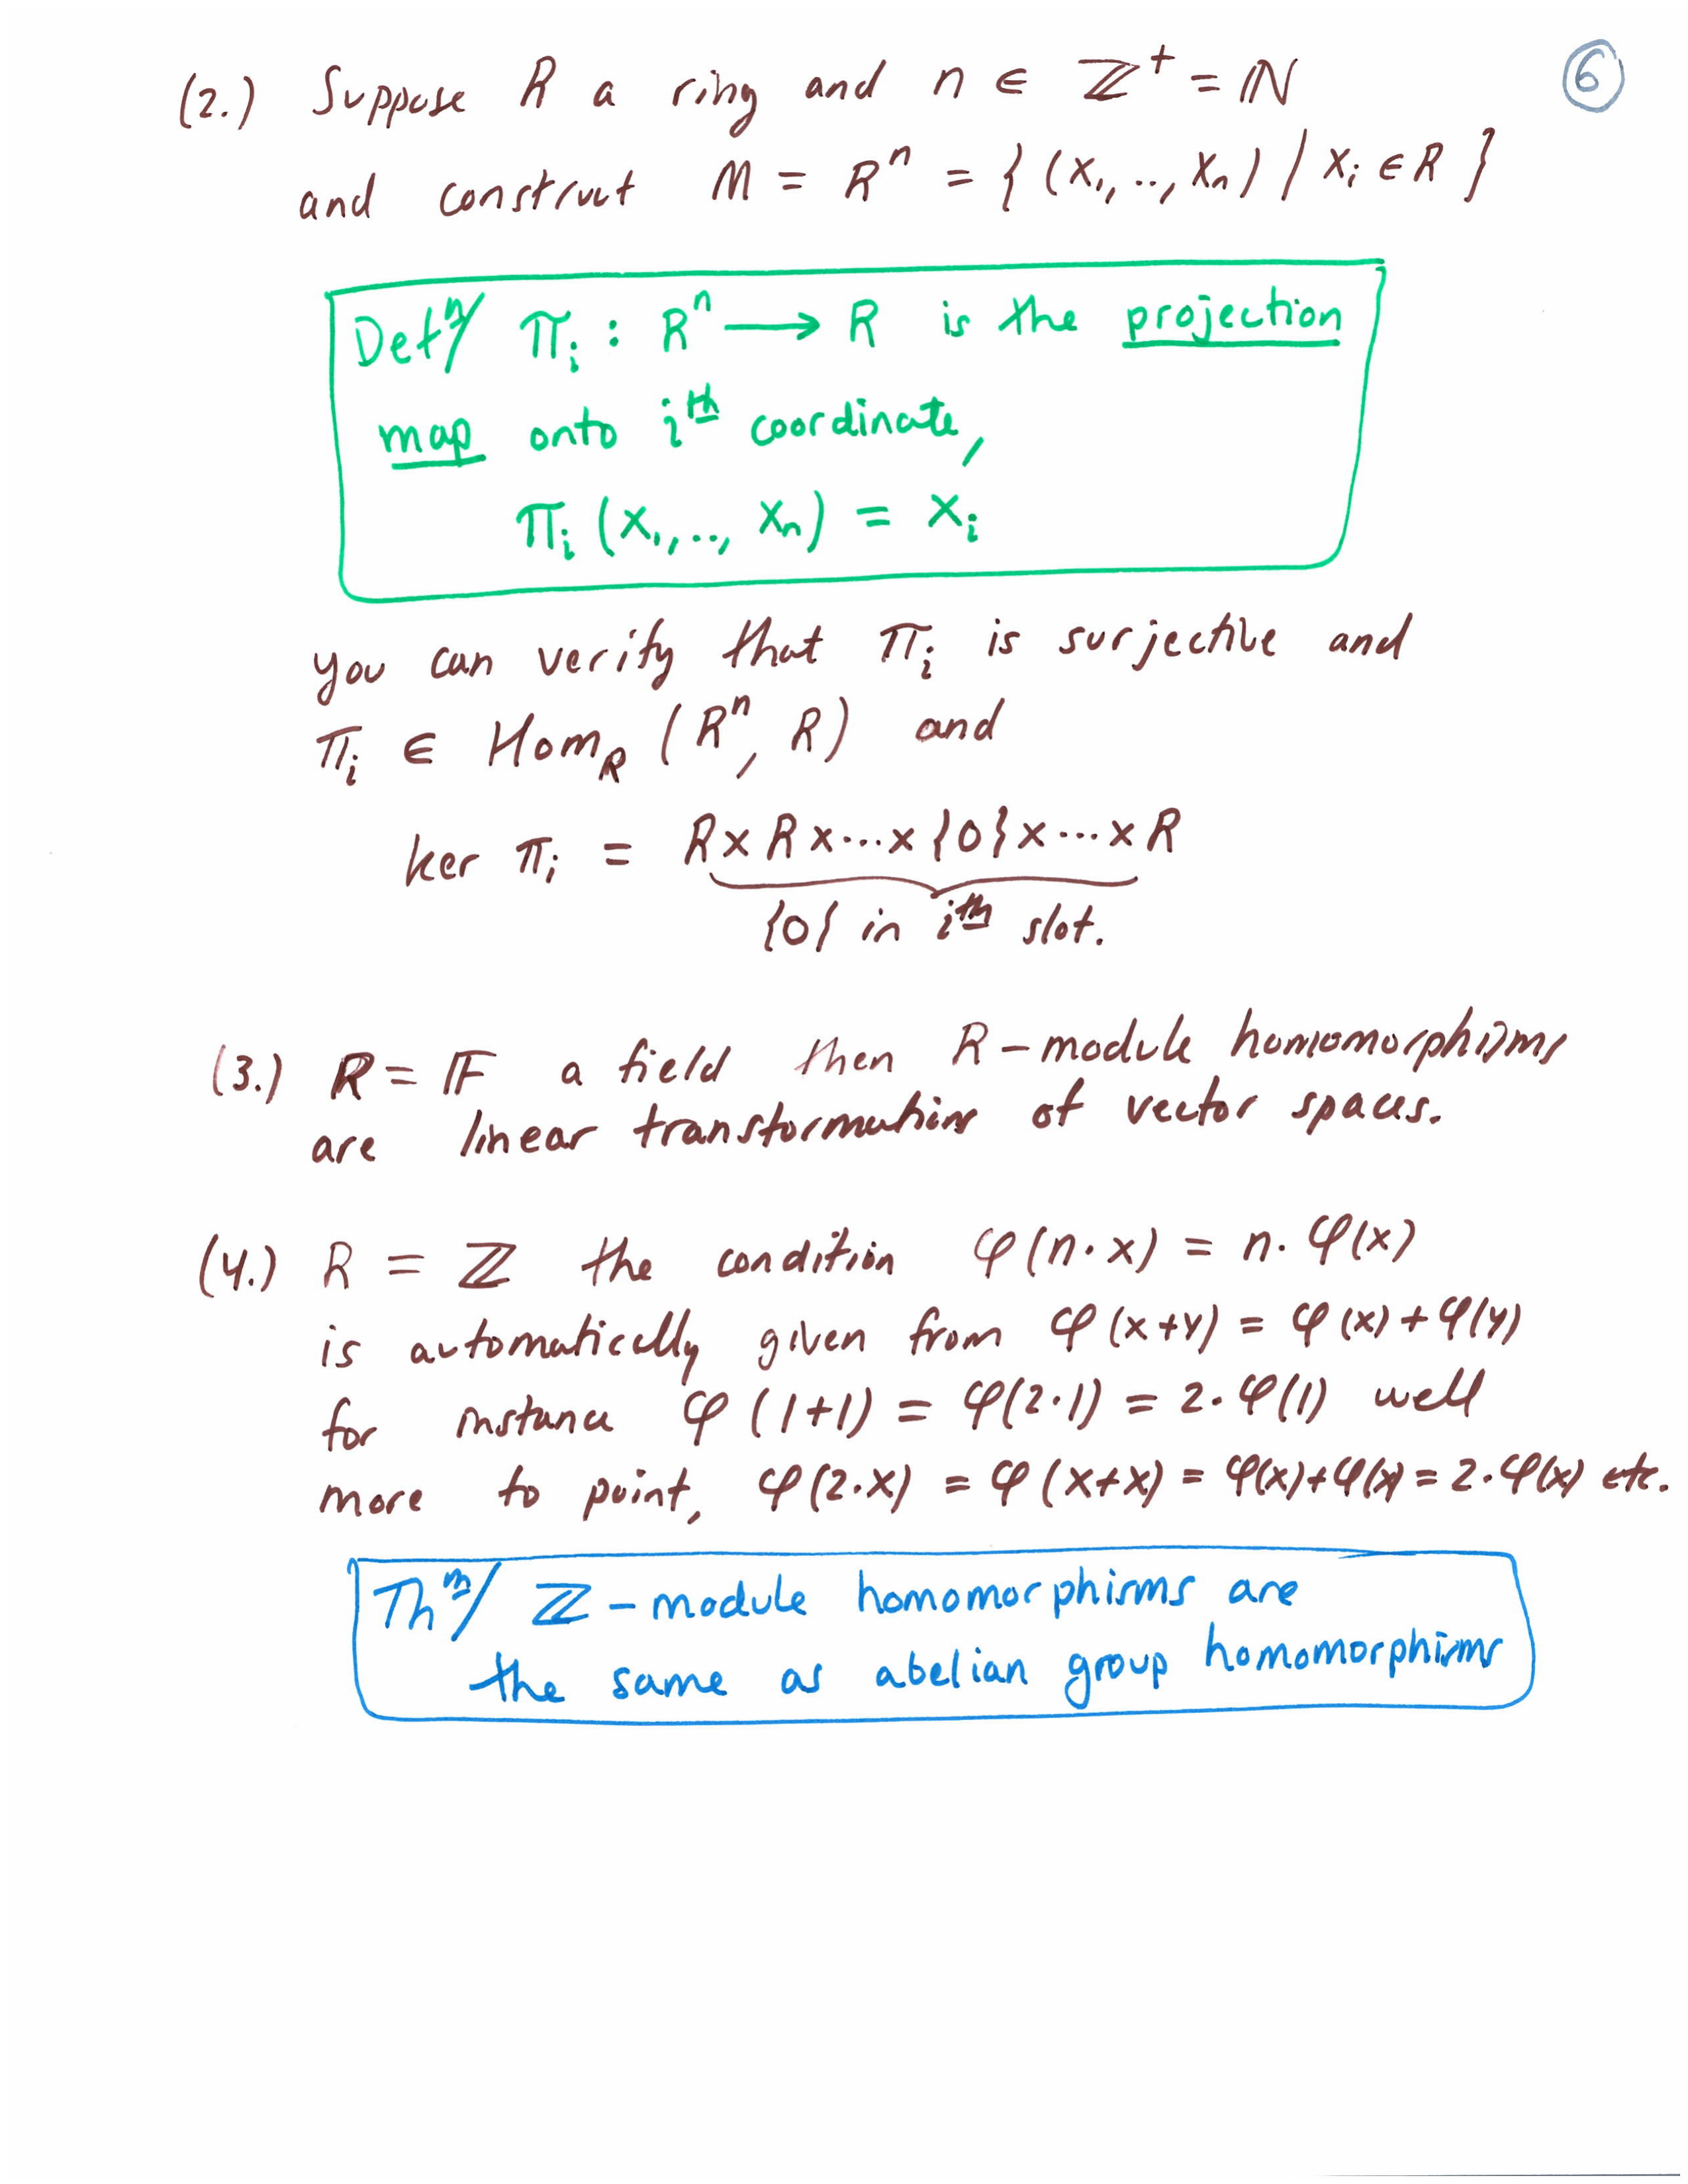 (2.) Suppose R a ring and n ∈ ℤ⁺ = ℕ
⑥
and construct M = Rⁿ = { (x₁, .., xₙ) / xᵢ ∈ R }
Defⁿ/ πᵢ : Rⁿ ⟶ R is the projection
map onto iᵗʰ coordinate,
πᵢ (x₁, .., xₙ) = xᵢ
you can verify that πᵢ is surjective and
πᵢ ∈ Hom_R (Rⁿ, R) and
ker πᵢ = R × R × ... × {0} × ... × R
{0} in iᵗʰ slot.
(3.) R = 𝔽 a field then R-module homomorphisms
are linear transformations of vector spaces.
(4.) R = ℤ the condition φ(n·x) = n·φ(x)
is automatically given from φ(x+y) = φ(x)+φ(y)
for instance φ(1+1) = φ(2·1) = 2·φ(1) well
more to point, φ(2·x) = φ(x+x) = φ(x)+φ(x) = 2·φ(x) etc.
Thᵐ/ ℤ-module homomorphisms are
the same as abelian group homomorphisms